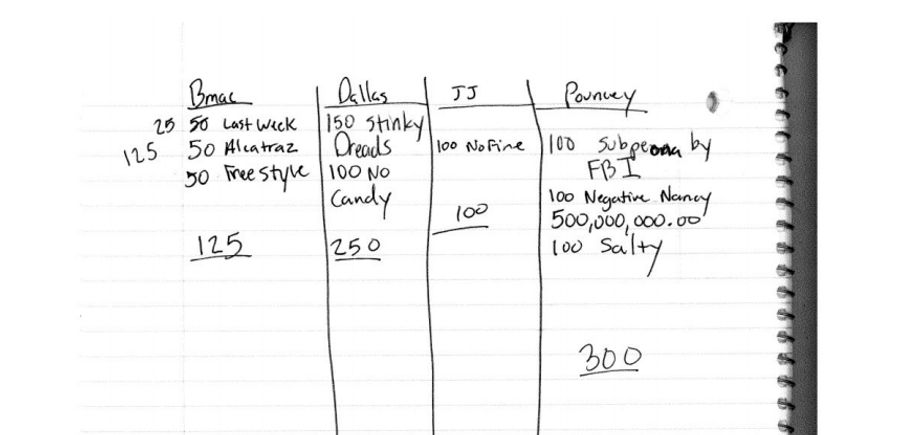 Bmac
25 50 Last week
125 50 Alcatraz
50 Freestyle
125
Dallas
150 Stinky
Dreads
100 No
Candy
250
JJ
100 No Fine
100
Pouncey
100 Subpeona by
FBI
100 Negative Nancy
500,000,000.00
100 Salty
300